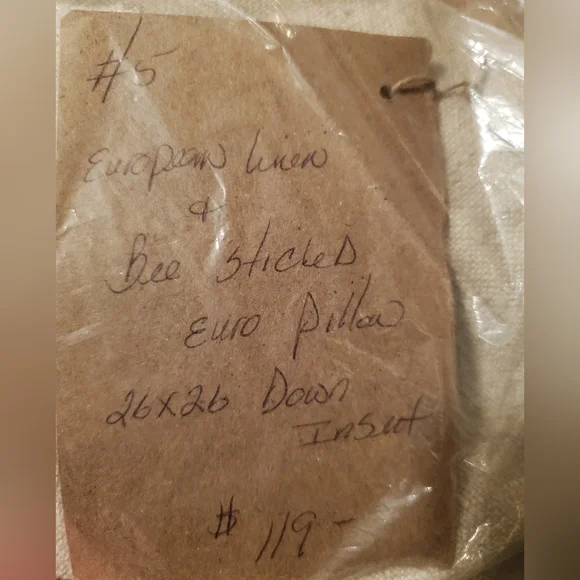 #5
European Linen
&
Bee Stiched
Euro Pillow
26x26 Down
Insert
$ 119-